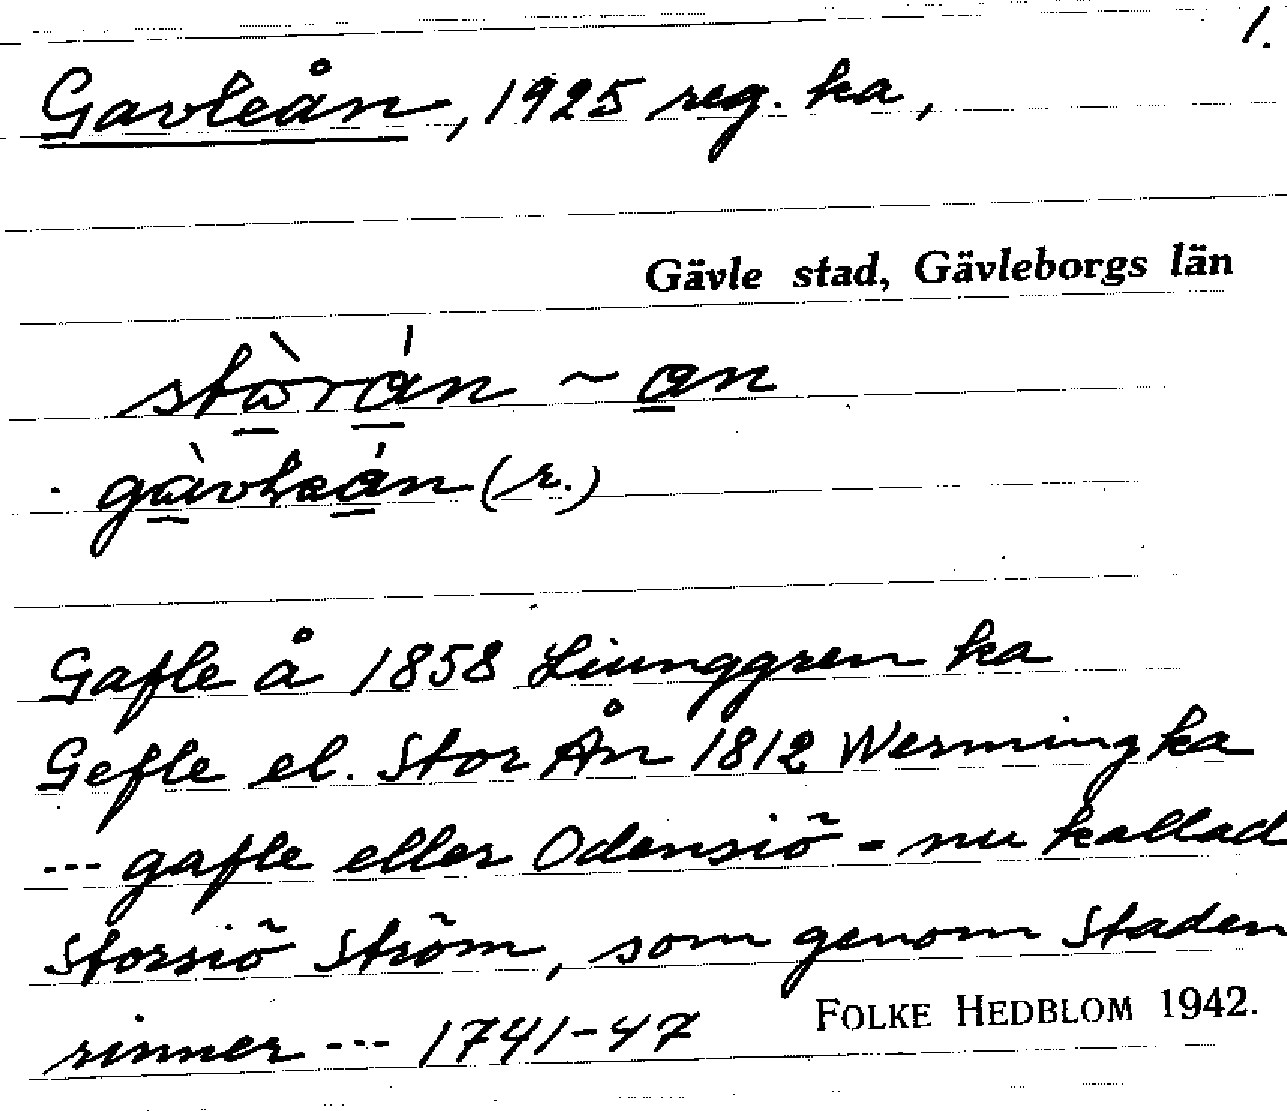 1.
Gavleån, 1925 reg. ka,
Gävle stad, Gävleborgs län
stòrán ~ an
gàvleán (r.)
Gafle å 1858 Liunggren ka
Gefle el. Stor Ån 1812 Werming ka
--- gafle eller Odensiö - nu kallad
Storsiö Ström, som genom Staden
rinner --- 1741-47
FOLKE HEDBLOM 1942.